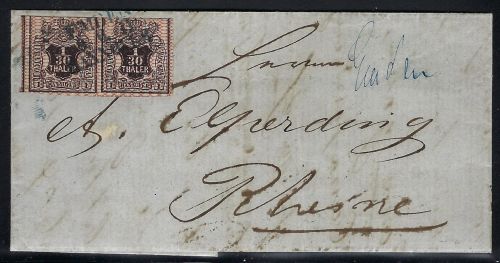 1
30
THALER
1
30
THALER
Herrn
Emden
A. Elperding
Rheine